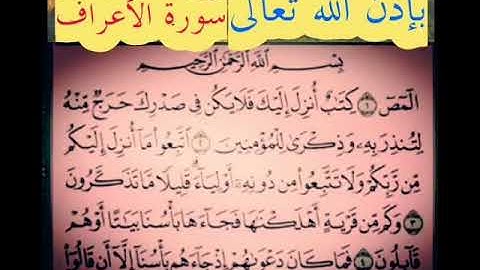 بإذن الله تعالى سورة الأعراف
بِسْمِ ٱللَّهِ ٱلرَّحْمَٰنِ ٱلرَّحِيمِ
الٓمٓصٓ ١ كِتَٰبٌ أُنزِلَ إِلَيْكَ فَلَا يَكُن فِى صَدْرِكَ حَرَجٌ مِّنْهُ
لِتُنذِرَ بِهِۦ وَذِكْرَىٰ لِلْمُؤْمِنِينَ ٢ ٱتَّبِعُوا۟ مَآ أُنزِلَ إِلَيْكُم
مِّن رَّبِّكُمْ وَلَا تَتَّبِعُوا۟ مِن دُونِهِۦٓ أَوْلِيَآءَ ۗ قَلِيلًا مَّا تَذَكَّرُونَ
٣ وَكَم مِّن قَرْيَةٍ أَهْلَكْنَٰهَا فَجَآءَهَا بَأْسُنَا بَيَٰتًا أَوْ هُمْ
قَآئِلُونَ ٤ فَمَا كَانَ دَعْوَىٰهُمْ إِذْ جَآءَهُم بَأْسُنَآ إِلَّآ أَن قَالُوٓا۟